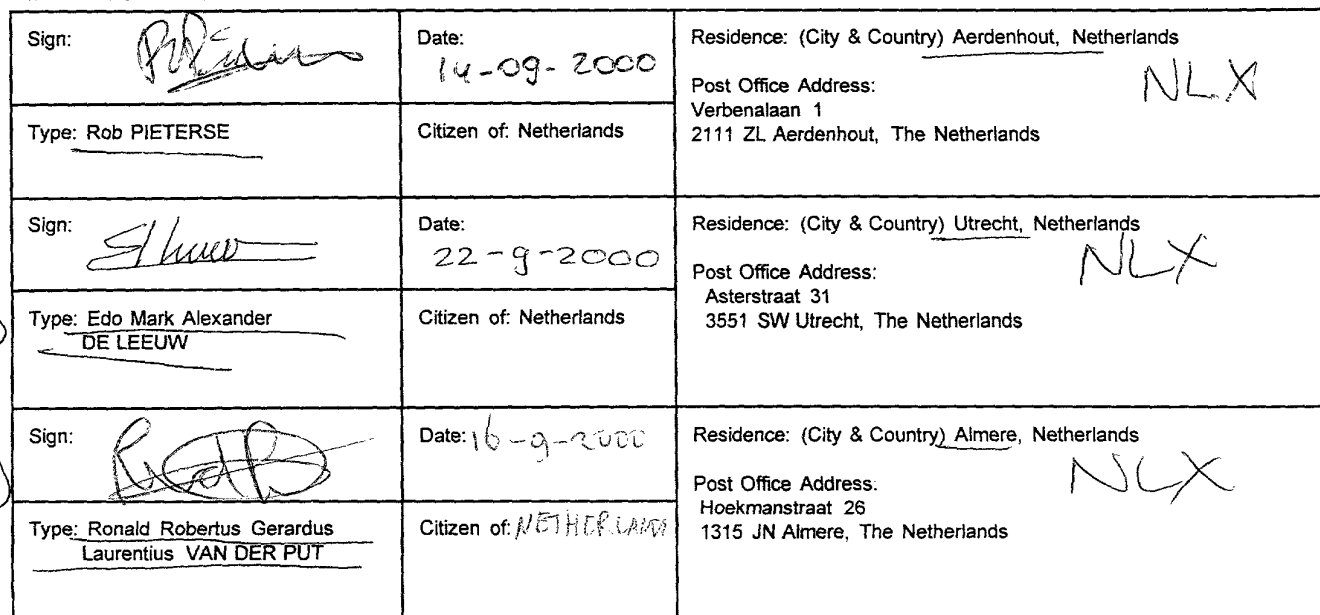 Sign:
Date:
14-09-2000
Residence: (City & Country) Aerdenhout, Netherlands
NLX
Post Office Address:
Verbenalaan 1
2111 ZL Aerdenhout, The Netherlands
Type: Rob PIETERSE
Citizen of: Netherlands
Sign:
Date:
22-9-2000
Residence: (City & Country) Utrecht, Netherlands
NLX
Post Office Address:
Asterstraat 31
3551 SW Utrecht, The Netherlands
Type: Edo Mark Alexander
DE LEEUW
Citizen of: Netherlands
Sign:
Date: 16-9-2000
Residence: (City & Country) Almere, Netherlands
NLX
Post Office Address:
Hoekmanstraat 26
1315 JN Almere, The Netherlands
Type: Ronald Robertus Gerardus
Laurentius VAN DER PUT
Citizen of: NETHERLANDS